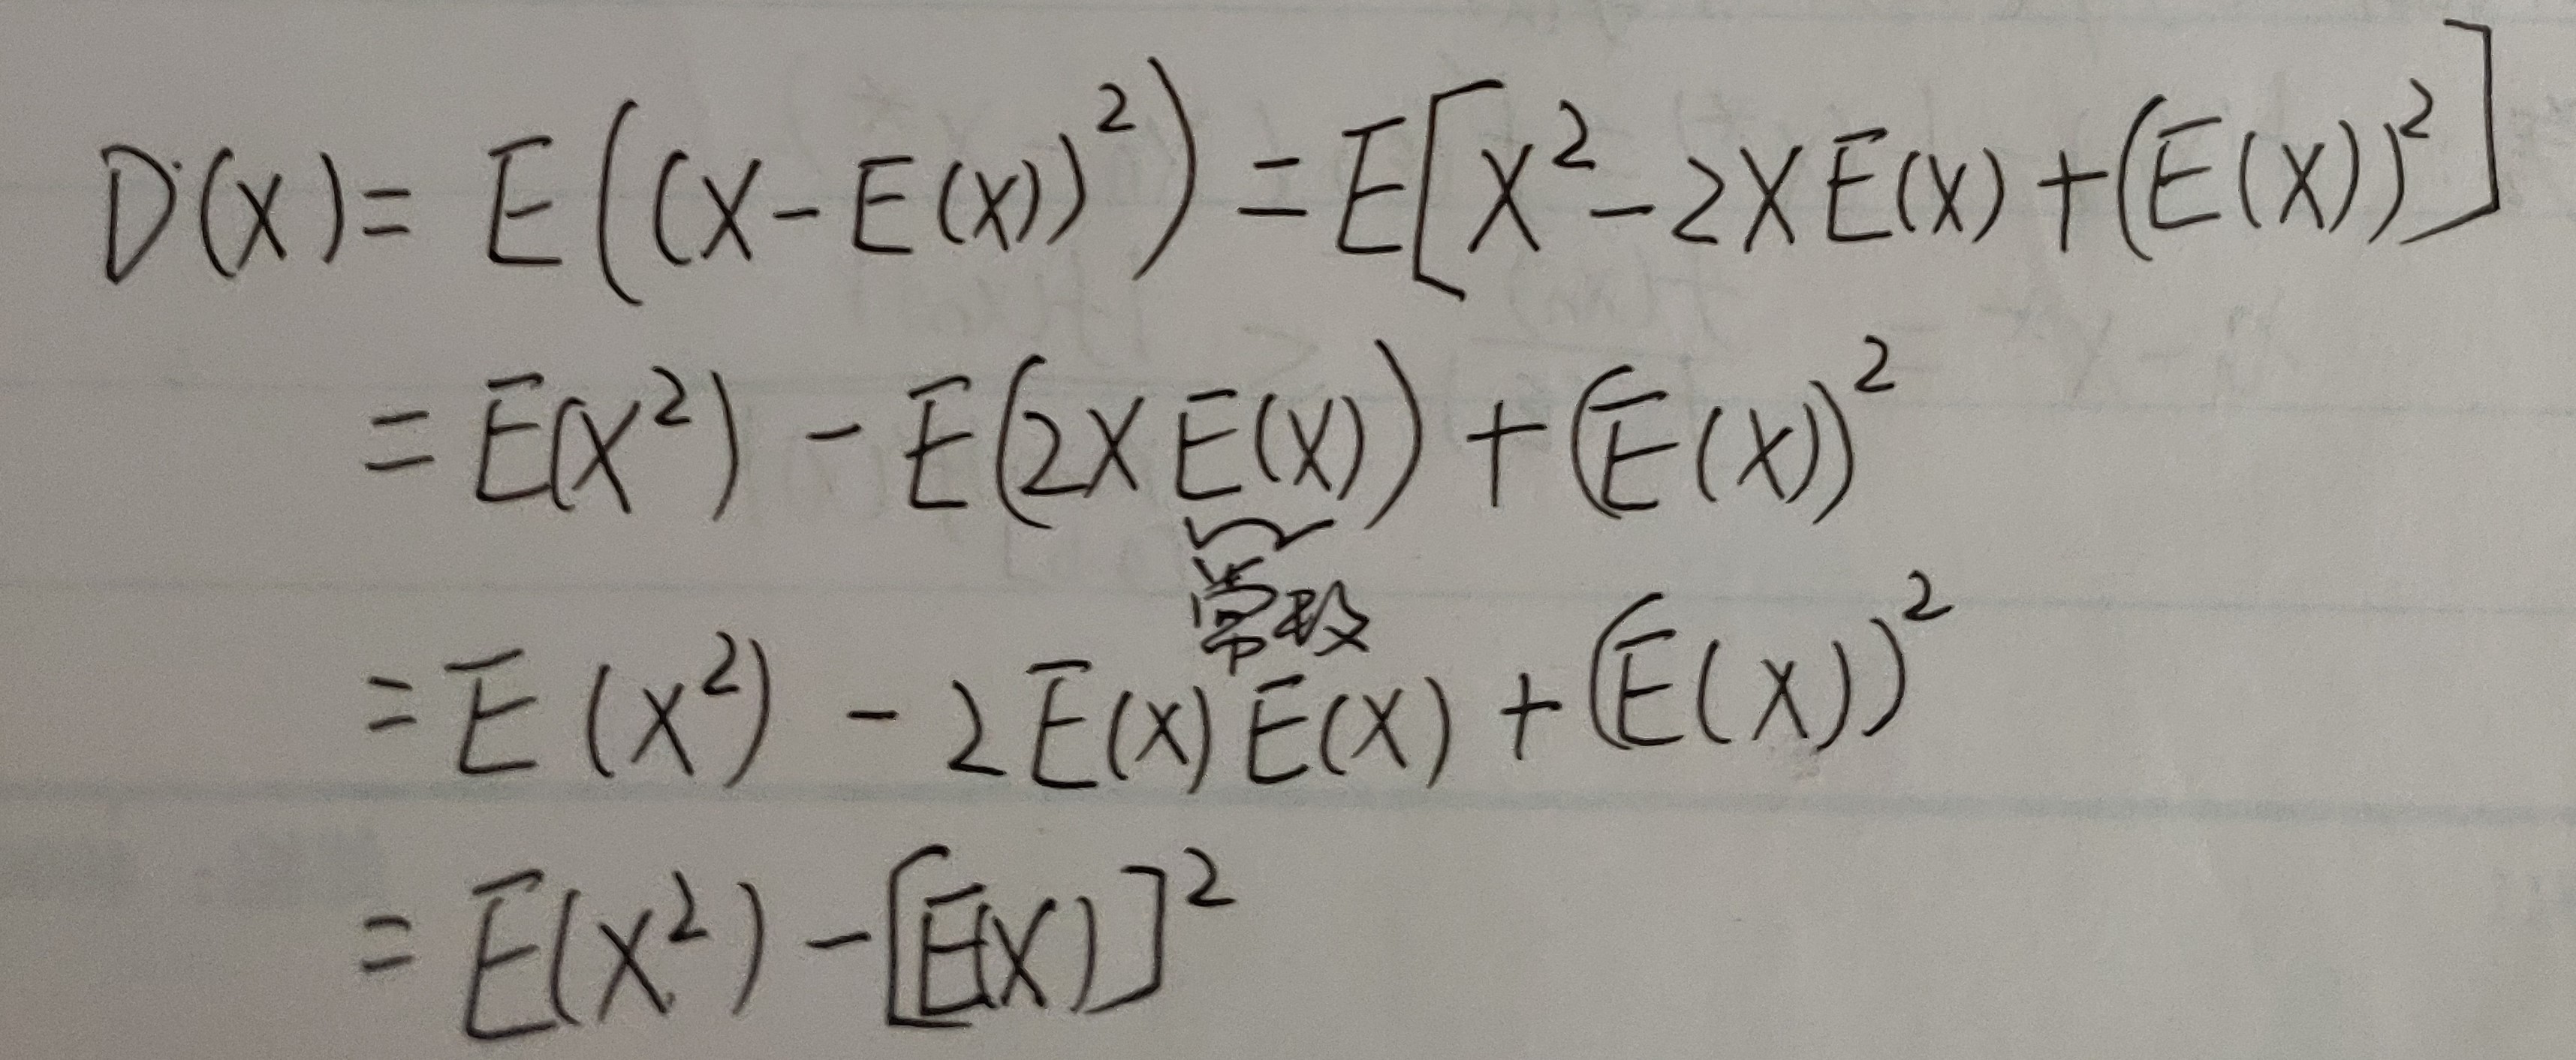 D(X) = E((X-E(X))²) = E[X²-2XE(X)+(E(X))²]
= E(X²) - E(2XE(X)) + (E(X))²
常数
= E(X²) - 2E(X)E(X) + (E(X))²
= E(X²) - [E(X)]²